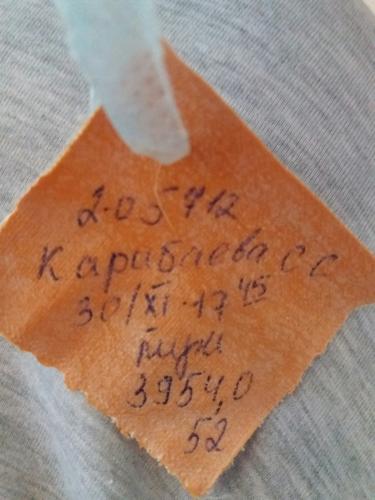 2-05712
Карибаева С С
30/XI-17 45
муж
3954,0
52